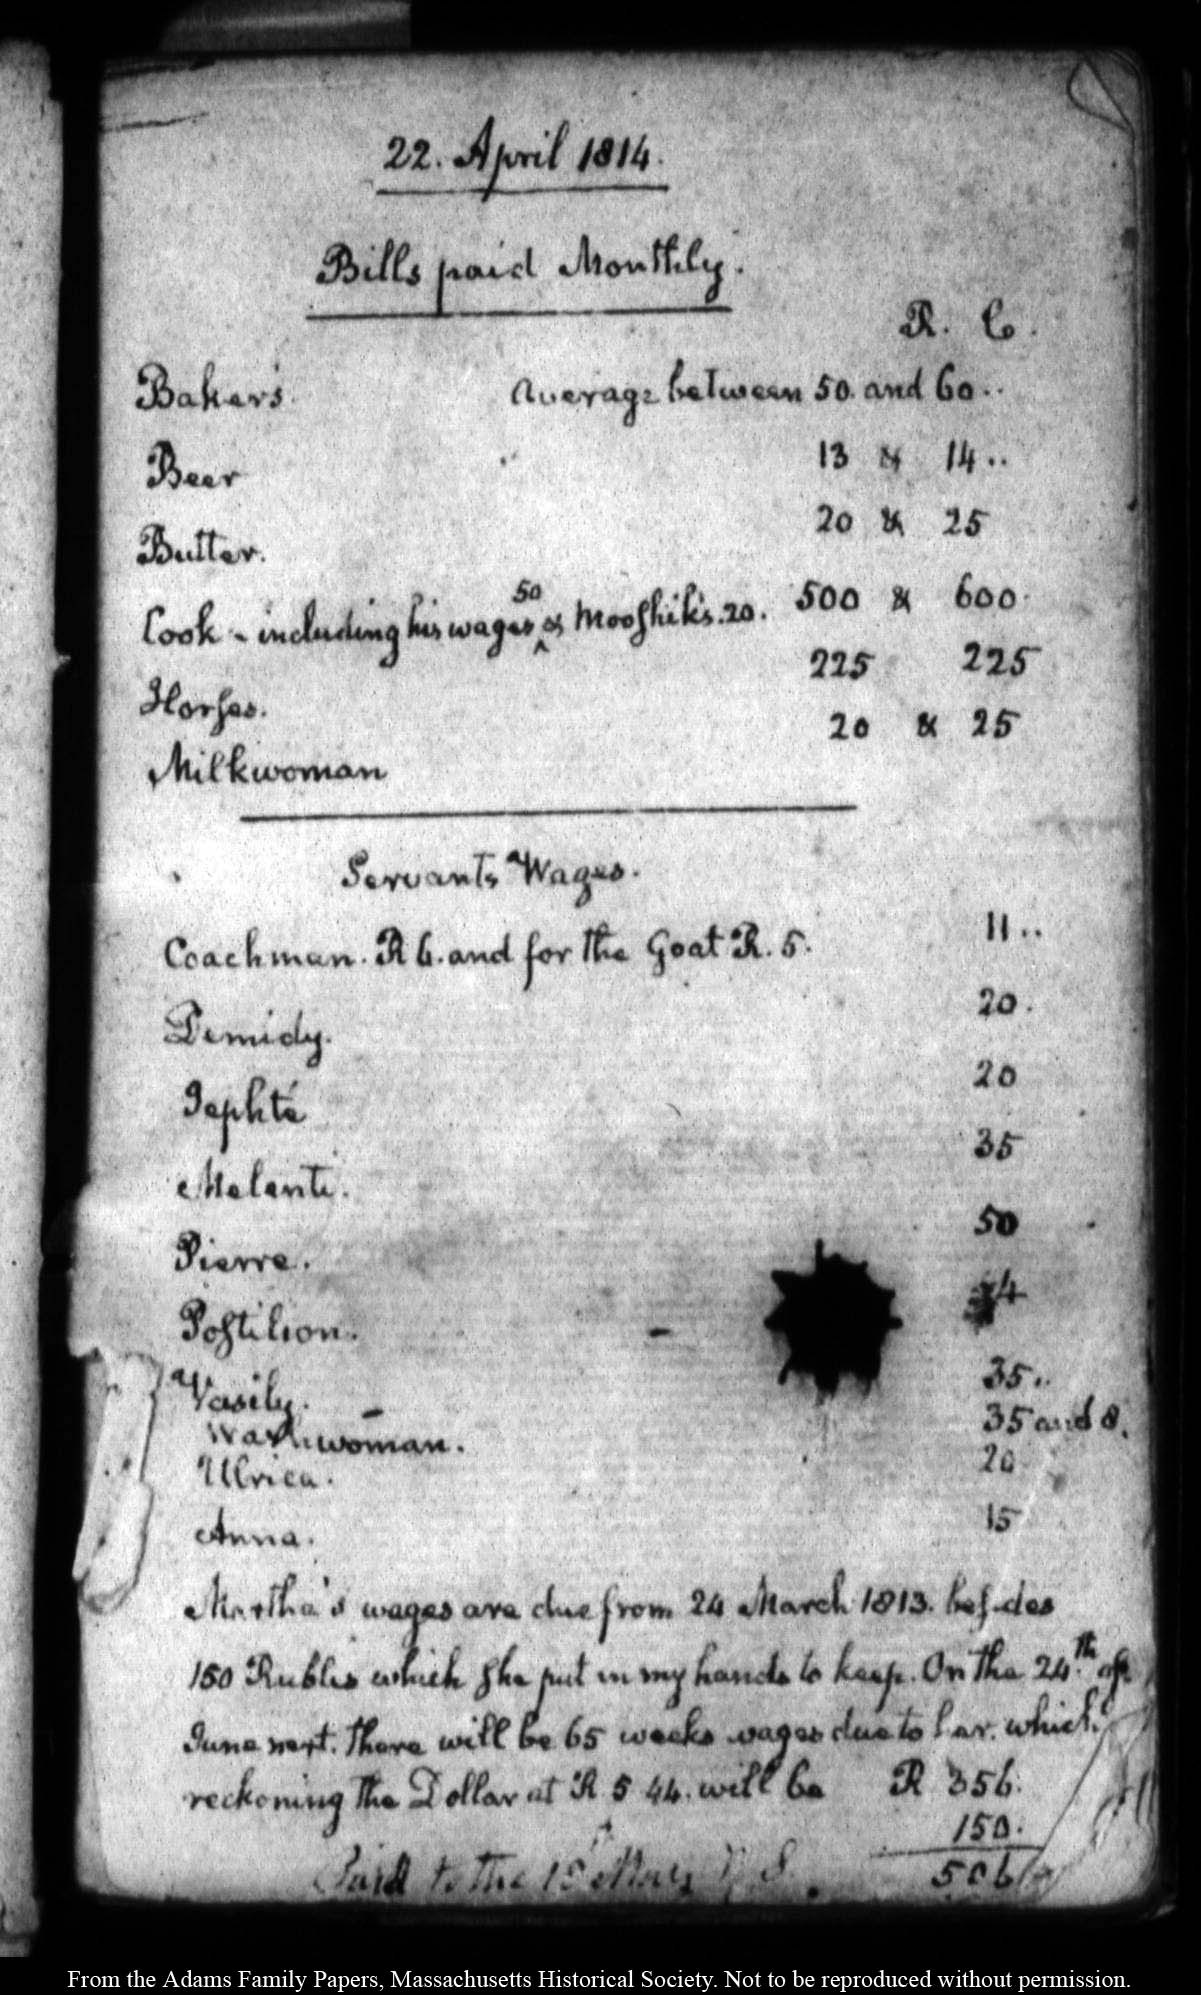 22. April 1814.
Bills paid Monthly.
R. C.
Baker's. Average between 50. and 60..
Beer 13 & 14..
Butter. 20 & 25
Cook - including his wages 50 & Mooshik's. 20. 500 & 600.
Horses. 225 225
Milkwoman 20 & 25
Servants Wages.
Coachman. R 6. and for the Goat R. 5. 11..
Demidy. 20.
Jephté 20
Melanti. 35
Pierre. 50
Postilion. - 4
Vasily. 35..
Washwoman. 35 and 8.
Ulrica. 20
Anna. 15
Martha's wages are due from 24 March 1813. besides
150 Rubles which she put in my hands to keep. On the 24.th of
June next. there will be 65 weeks wages due to her. which
reckoning the Dollar at R 5 44. will be R 356.
150.
Paid to the 15 May 506
From the Adams Family Papers, Massachusetts Historical Society. Not to be reproduced without permission.